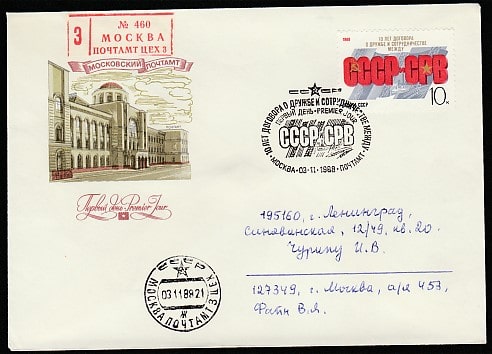 З
№ 460
МОСКВА
ПОЧТАМТ ЦЕХ 3
МОСКОВСКИЙ ПОЧТАМТ
Первый день • Premier Jour
1988
10 ЛЕТ ДОГОВОРА
О ДРУЖБЕ И СОТРУДНИЧЕСТВЕ
МЕЖДУ
СССР-СРВ
10к
СССР
10 ЛЕТ ДОГОВОРА О ДРУЖБЕ И СОТРУДНИЧЕСТВЕ МЕЖДУ
ПЕРВЫЙ ДЕНЬ • PREMIER JOUR
СССР-СРВ
• МОСКВА • 03-11-1988 • ПОЧТАМТ •
195160, г. Ленинград,
Синявинская, 12/49, кв. 20.
Чурину И.В.
127349, г. Москва, а/я 453,
Фатн В.Я.
СССР
03118821
МОСКВА ПОЧТАМТ
Ж